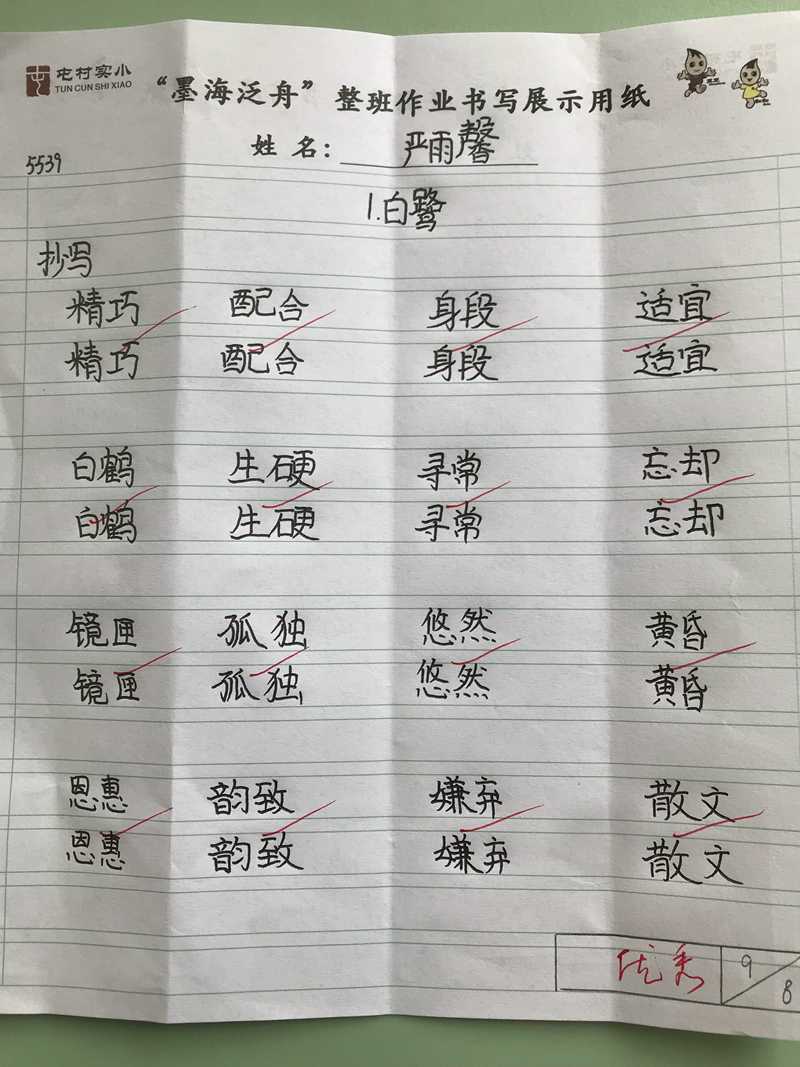 屯村实小
TUN CUN SHI XIAO
“墨海泛舟”整班作业书写展示用纸
姓名：严雨馨
5539
1.白鹭
抄写
精巧 配合 身段 适宜
精巧 配合 身段 适宜
白鹤 生硬 寻常 忘却
白鹤 生硬 寻常 忘却
镜匣 孤独 悠然 黄昏
镜匣 孤独 悠然 黄昏
恩惠 韵致 嫌弃 散文
恩惠 韵致 嫌弃 散文
优秀 9/8